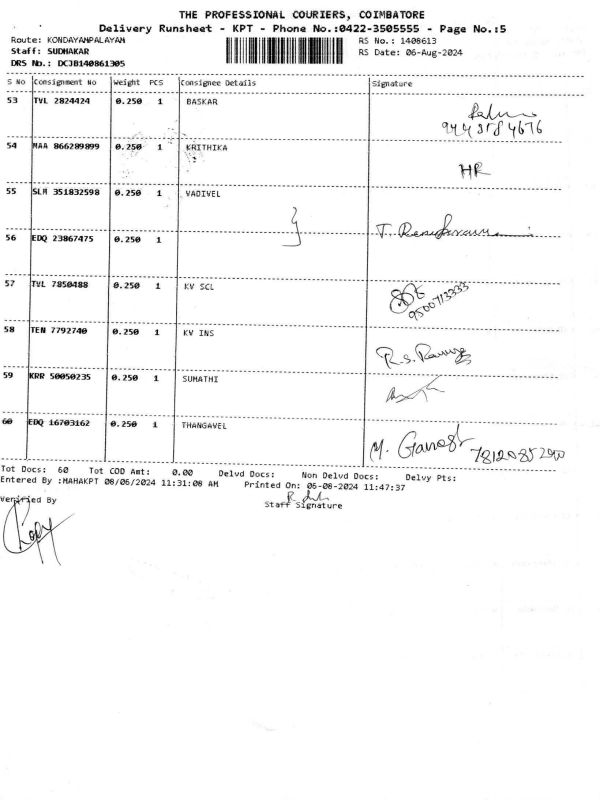 THE PROFESSIONAL COURIERS, COIMBATORE
Delivery Runsheet - KPT - Phone No.:0422-3505555 - Page No.:5
Route: KONDAYAMPALAYAM RS No.: 1408613
Staff: SUDHAKAR RS Date: 06-Aug-2024
DRS No.: DCJB140861305
S No Consignment No Weight PCS Consignee Details Signature
53 TVL 2824424 0.250 1 BASKAR
54 MAA 866289899 0.250 1 KRITHIKA
HR
55 SLM 351832598 0.250 1 VADIVEL
56 EDQ 23867475 0.250 1
57 TVL 7850488 0.250 1 KV SCL
9500713333
58 TEN 7792740 0.250 1 KV INS
59 KRR 50050235 0.250 1 SUMATHI
60 EDQ 16703162 0.250 1 THANGAVEL
M. Ganesh
Tot Docs: 60 Tot COD Amt: 0.00 Delvd Docs: Non Delvd Docs: Delvy Pts:
Entered By :MAHAKPT 08/06/2024 11:31:08 AM Printed On: 06-08-2024 11:47:37
Verified By Staff Signature